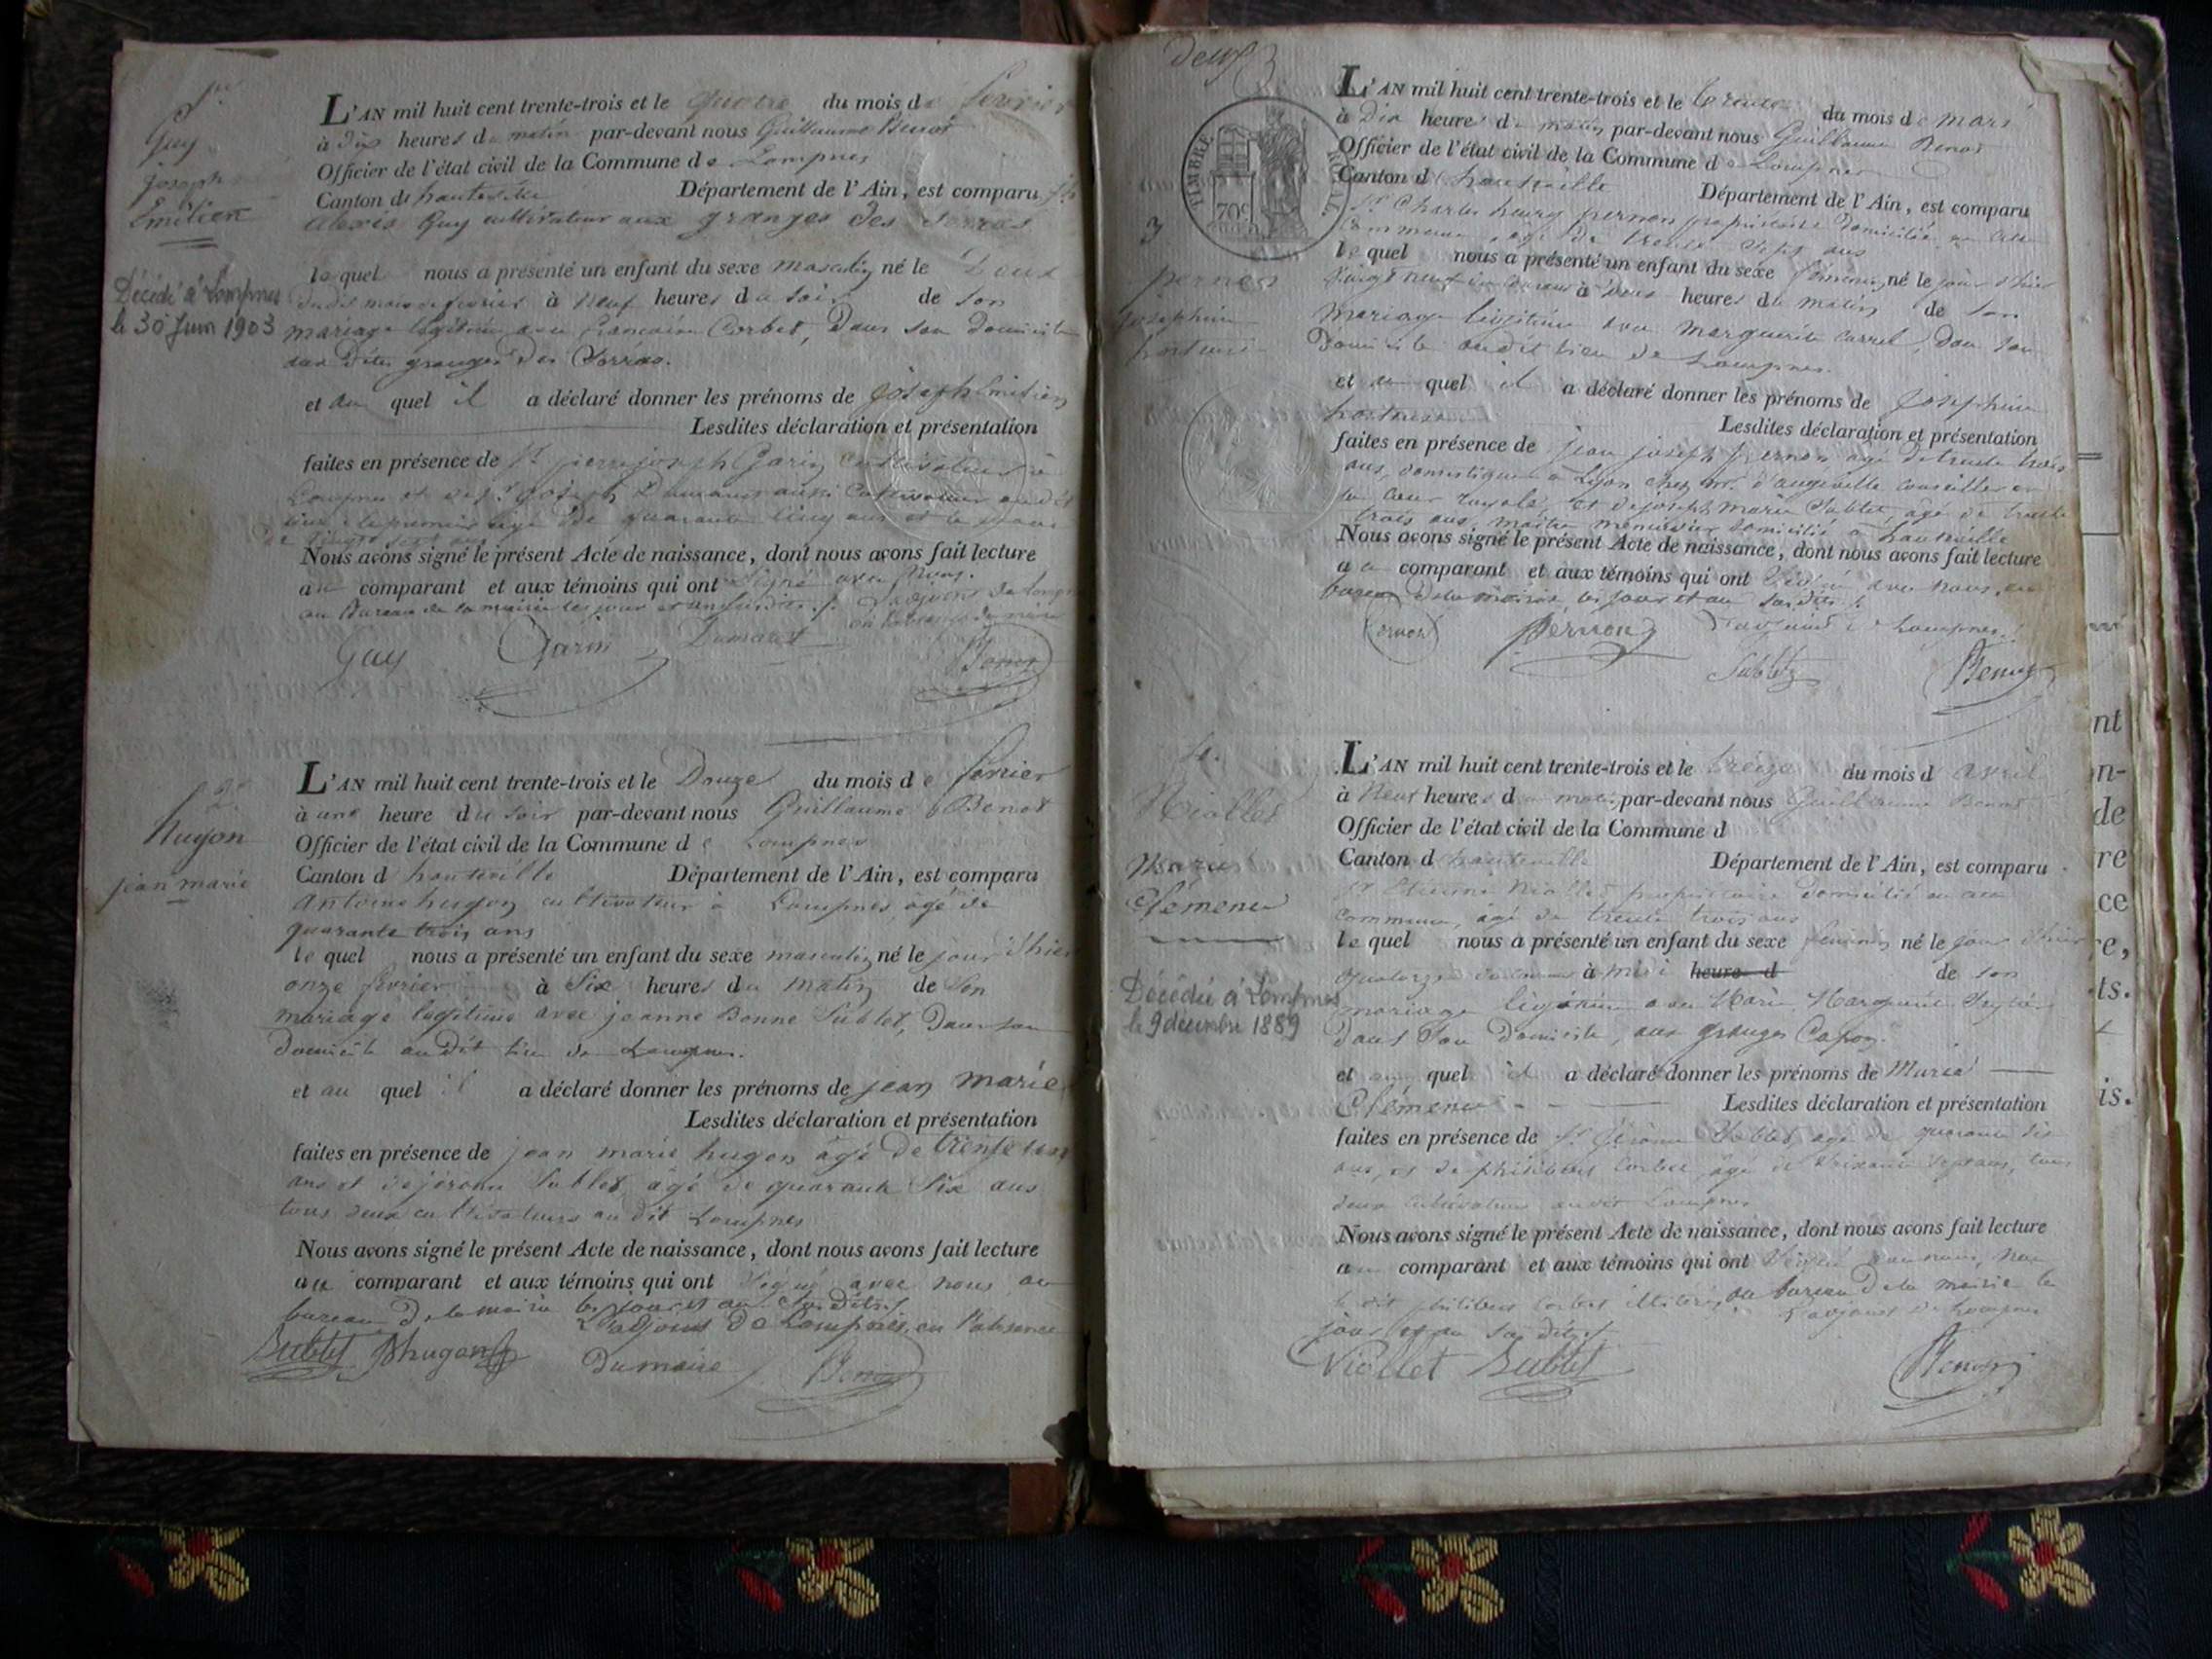 1er
Guy
joseph
Emilien
Décédé à Lompnes
le 30 Juin 1903
L'AN mil huit cent trente-trois et le quatre du mois de fevrier
à dix heures du matin par-devant nous Guillaume Benot
Officier de l'état civil de la Commune de Lompnes
Canton de hauteville Département de l'Ain, est comparu
alexis Guy cultivateur aux granges des Serras
lequel nous a présenté un enfant du sexe masculin né le Deux
dudit mois de fevrier à neuf heures du soir de son
mariage légitime avec francoise Corbet, Dans son Domicile
aux dites granges des Serras.
et au quel il a déclaré donner les prénoms de joseph Emilien
Lesdites déclaration et présentation
faites en présence de Sr pierre joseph Garin cultivateur à
Lompnes et de Sr joseph Dumarest aussi cultivateur audit
lieu le premier âgé de quarante cinq ans et le
de vingt sept ans
Nous avons signé le présent Acte de naissance, dont nous avons fait lecture
au comparant et aux témoins qui ont signé avec Nous.
au Bureau de la mairie les jour et an susdits. L'adjoint de Lompnes
en l'absence du maire
Guy Garin Dumarest Benot
2e
hugon
jean marie
L'AN mil huit cent trente-trois et le Douze du mois de fevrier
à une heure du soir par-devant nous Guillaume Benot
Officier de l'état civil de la Commune de Lompnes
Canton d hauteville Département de l'Ain, est comparu
Antoine hugon cultivateur à Lompnes, âgé de
quarante trois ans
lequel nous a présenté un enfant du sexe masculin né le jour d'hier
onze fevrier à Six heures du matin de Son
mariage légitime avec jeanne Bonne Sublet, Dans son
Domicile audit lieu de Lompnes.
et au quel il a déclaré donner les prénoms de jean marie
Lesdites déclaration et présentation
faites en présence de jean marie hugon âgé de trente
ans et de jérome Sublet âgé de quarante Six ans
tous deux cultivateurs audit Lompnes
Nous avons signé le présent Acte de naissance, dont nous avons fait lecture
au comparant et aux témoins qui ont Signé avec nous, au
bureau De la mairie les jour et an Susdits
L'adjoint De Lompnes, en l'absence
Sublet hugon Du maire Benot
deux
TIMBRE ROYAL
70c
3
pernon
josephine
hortense
L'AN mil huit cent trente-trois et le trente du mois de mars
à Dix heures du matin par-devant nous Guillaume Benot
Officier de l'état civil de la Commune de Lompnes
Canton d hauteville Département de l'Ain, est comparu
Sr Charles henry pernon propriétaire Domicilié en cette
Commune, agé de trente Sept ans
lequel nous a présenté un enfant du sexe féminin né le jour d'hier
vingt neuf du courant à Deux heures du matin de Son
mariage légitime avec marguerite Carrel, Dans Son
Domicile audit lieu de Lompnes.
et au quel il a déclaré donner les prénoms de josephine
hortense Lesdites déclaration et présentation
faites en présence de jean joseph pernon agé de trente trois
ans, domestique à Lyon chez mr. d'angeville conseiller en
la Cour royale, et de joseph marie Sublet, agé de trente
trois ans, maître menuisier domicilié à hauteville
Nous avons signé le présent Acte de naissance, dont nous avons fait lecture
au comparant et aux témoins qui ont Signé avec nous, au
bureau De la mairie, les jour et an Susdits.
L'adjoint de Lompnes
pernon pernon Sublet Benot
4.
Niollet
Marie
Clémence
Décédée à Lompnes
le 9 décembre 1889
L'AN mil huit cent trente-trois et le treize du mois d avril
à Neuf heures du matin par-devant nous Guillaume Benot
Officier de l'état civil de la Commune d
Canton d hauteville Département de l'Ain, est comparu
Sr Etienne Niollet propriétaire Domicilié en cette
commune, âgé de trente trois ans
lequel nous a présenté un enfant du sexe féminin né le jour d'hier
à midi heure d de son
mariage légitime avec Marie Marguerite
dans Son Domicile, aux granges Capon.
et au quel il a déclaré donner les prénoms de Marie
Clémence Lesdites déclaration et présentation
faites en présence de Sr jérome Sublet agé de quarante Six
ans, et de philibert Corbet âgé de Soixante Sept ans, tous
deux Cultivateurs audit Lompnes
Nous avons signé le présent Acte de naissance, dont nous avons fait lecture
au comparant et aux témoins qui ont Signé avec nous, non
le dit philibert Corbet illitéré, au bureau De la mairie les
jour et an Susdits L'adjoint de Lompnes
Niollet Sublet Benot
nt
n-
de
re
ce
re,
ts.
is.